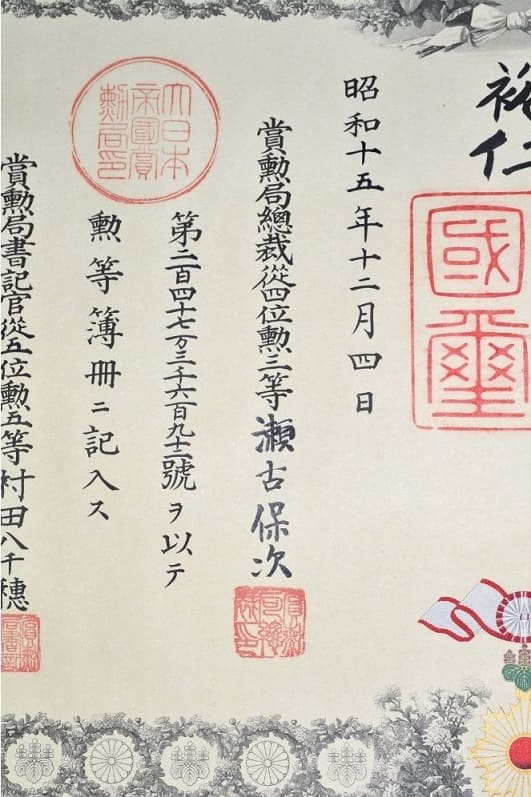 裕仁
國璽
昭和十五年十二月四日
賞勲局總裁從四位勲三等瀬古保次
第二百四十七万三千六百九十二號ヲ以テ
勲等簿册ニ記入ス
大日本
帝國賞
勲局印
賞勲局書記官從五位勲五等村田八千穗